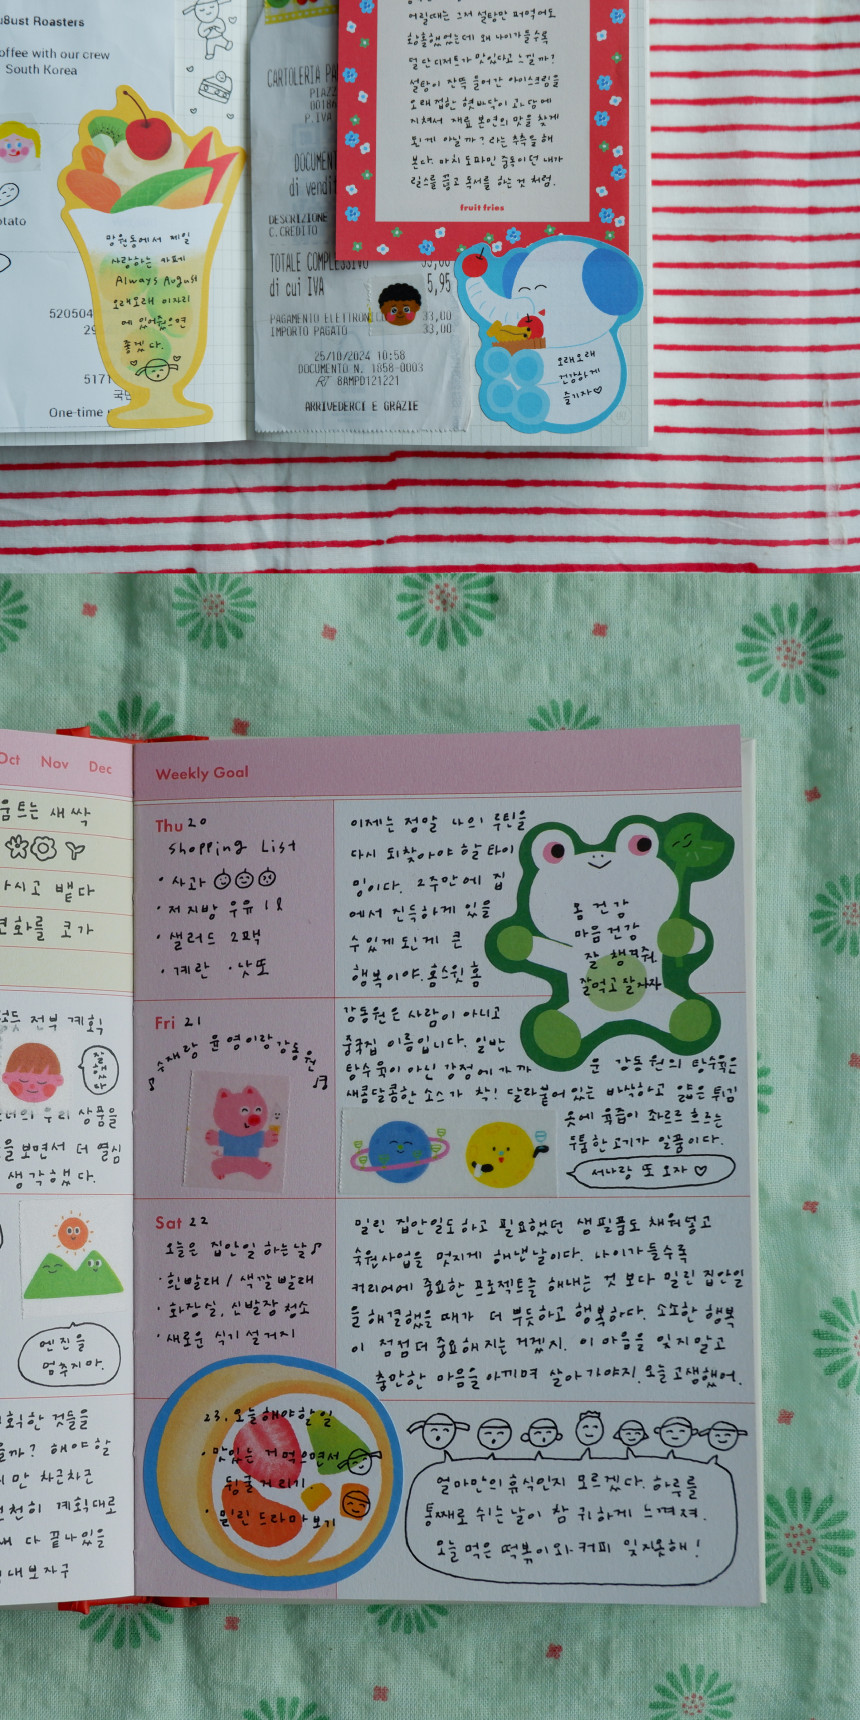 8ust Roasters
offee with our crew
South Korea
otato
520504
29
5171
국민
One-time
망원동에서 제일
사랑하는 카페
Always August
오래오래 이자리
에 있어줬으면
좋겠다.
CARTOLERIA PA
PIAZZ
00186
P.IVA
DOCUMENT
di vendit
DESCRIZIONE
C.CREDITO
TOTALE COMPLESSIVO
33,00
di cui IVA
5,95
PAGAMENTO ELETTRONICO
33,00
IMPORTO PAGATO
33,00
25/10/2024 10:58
DOCUMENTO N. 1858-0003
RT 8AMPD121221
ARRIVEDERCI E GRAZIE
어릴때는 그저 설탕만 퍼먹어도
황홀했었는데 왜 나이가들수록
덜 단 디저트가 맛있다고 느낄까?
설탕이 잔뜩 들어간 아이스크림을
오래 접한 혓바닥이 고농담에
지쳐서 재료 본연의 맛을 찾게
된게 아닐까? 라는 추측을 해
본다. 마치 도파민 중독이던 내가
릴스를 끊고 독서를 하는것 처럼.
fruit fries
오래오래
건강하게
즐기자♡
Oct Nov Dec
움트는 새싹
마시고 뱉다
변화를 코가
전부 계획
잘했다
우리 상품을
을 보면서 더 열심
생각했다.
엔진을
멈추지마.
계획한 것들을
을까? 해야 할
지만 차근차근
천천히 계획대로
새 다 끝나있을
내보자구
Weekly Goal
Thu 20
Shopping List
· 사과
· 저지방 우유 1l
· 샐러드 2팩
· 계란 · 낫또
이제는 정말 나의 루틴을
다시 되찾아야 할 타이
밍이다. 2주만에 집
에서 진득하게 있을
수 있게 된게 큰
행복이야. 홈스윗홈
몸 건강
마음 건강
잘 챙겨줘.
잘먹고 잘자자
Fri 21
수재랑 윤영이랑 강동원
강동원은 사람이 아니고
중국집 이름입니다. 일반
탕수육이 아닌 강정에 가까
운 강동원의 탕수육은
새콤달콤한 소스가 착! 달라붙어 있는 바삭하고 얇은 튀김
옷에 육즙이 좌르르 흐르는
두툼한 고기가 일품이다.
서나랑 또 오자 ♡
Sat 22
오늘은 집안일 하는날♪
· 흰빨래 / 색깔빨래
· 화장실, 신발장 청소
· 새로운 식기 설거지
밀린 집안일도 하고 필요했던 생필품도 채워넣고
숙원사업을 멋지게 해낸날이다. 나이가들수록
커리어에 중요한 프로젝트를 해내는 것 보다 밀린 집안일
을 해결했을 때가 더 뿌듯하고 행복하다. 소소한 행복
이 점점더 중요해 지는거겠지. 이 마음을 잊지말고
충만한 마음을 아끼며 살아가야지. 오늘 고생했어.
23. 오늘해야할일
· 맛있는 거 먹으면서
뒹굴거리기
· 밀린 드라마보기
얼마만의 휴식인지 모르겠다. 하루를
통째로 쉬는날이 참 귀하게 느껴져.
오늘 먹은 떡볶이와 커피 잊지못해!